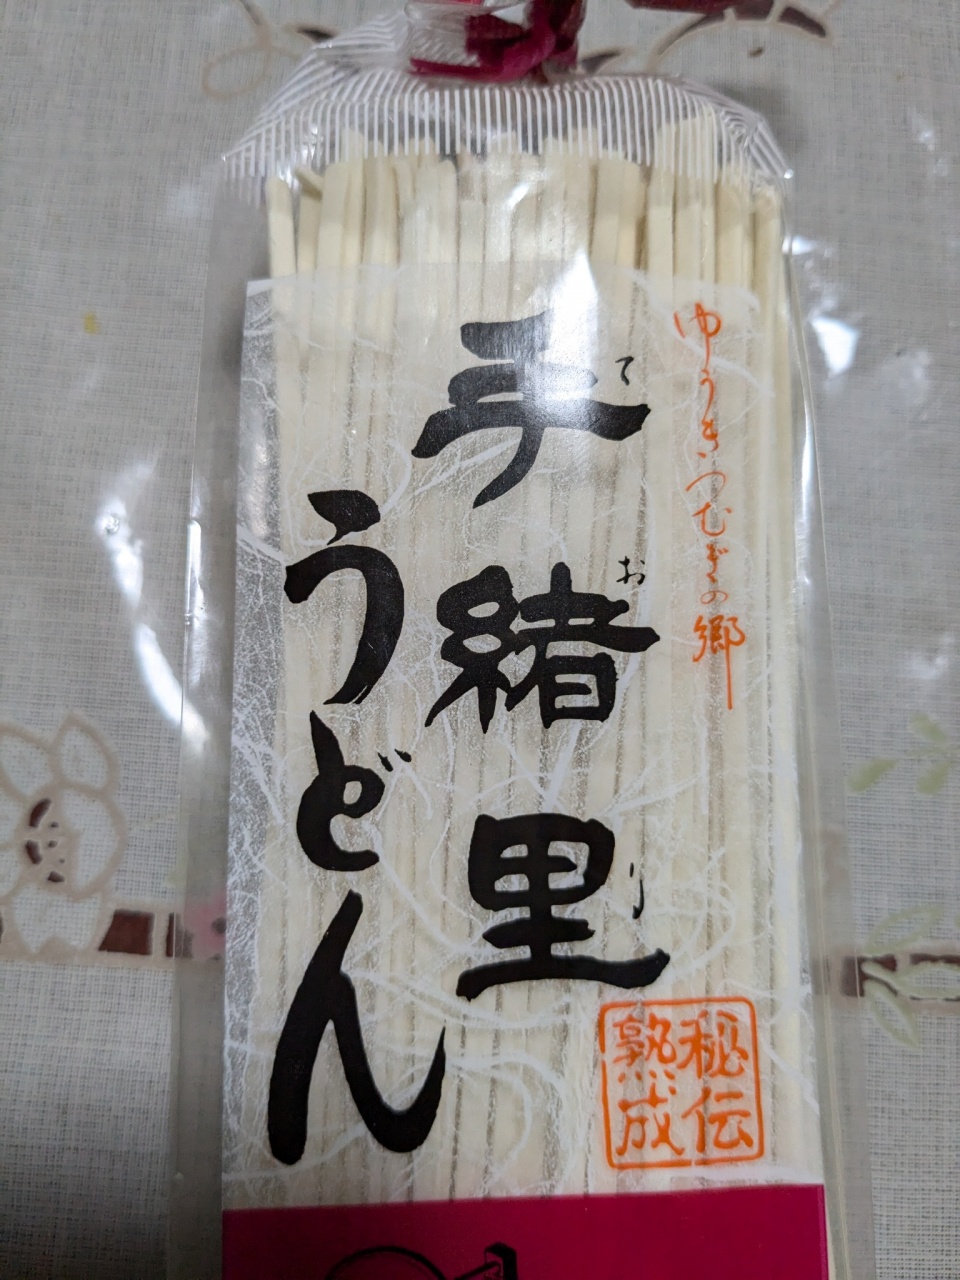 ゆうきつむぎの郷
手緒里
て
お
り
うどん
秘伝
熟成